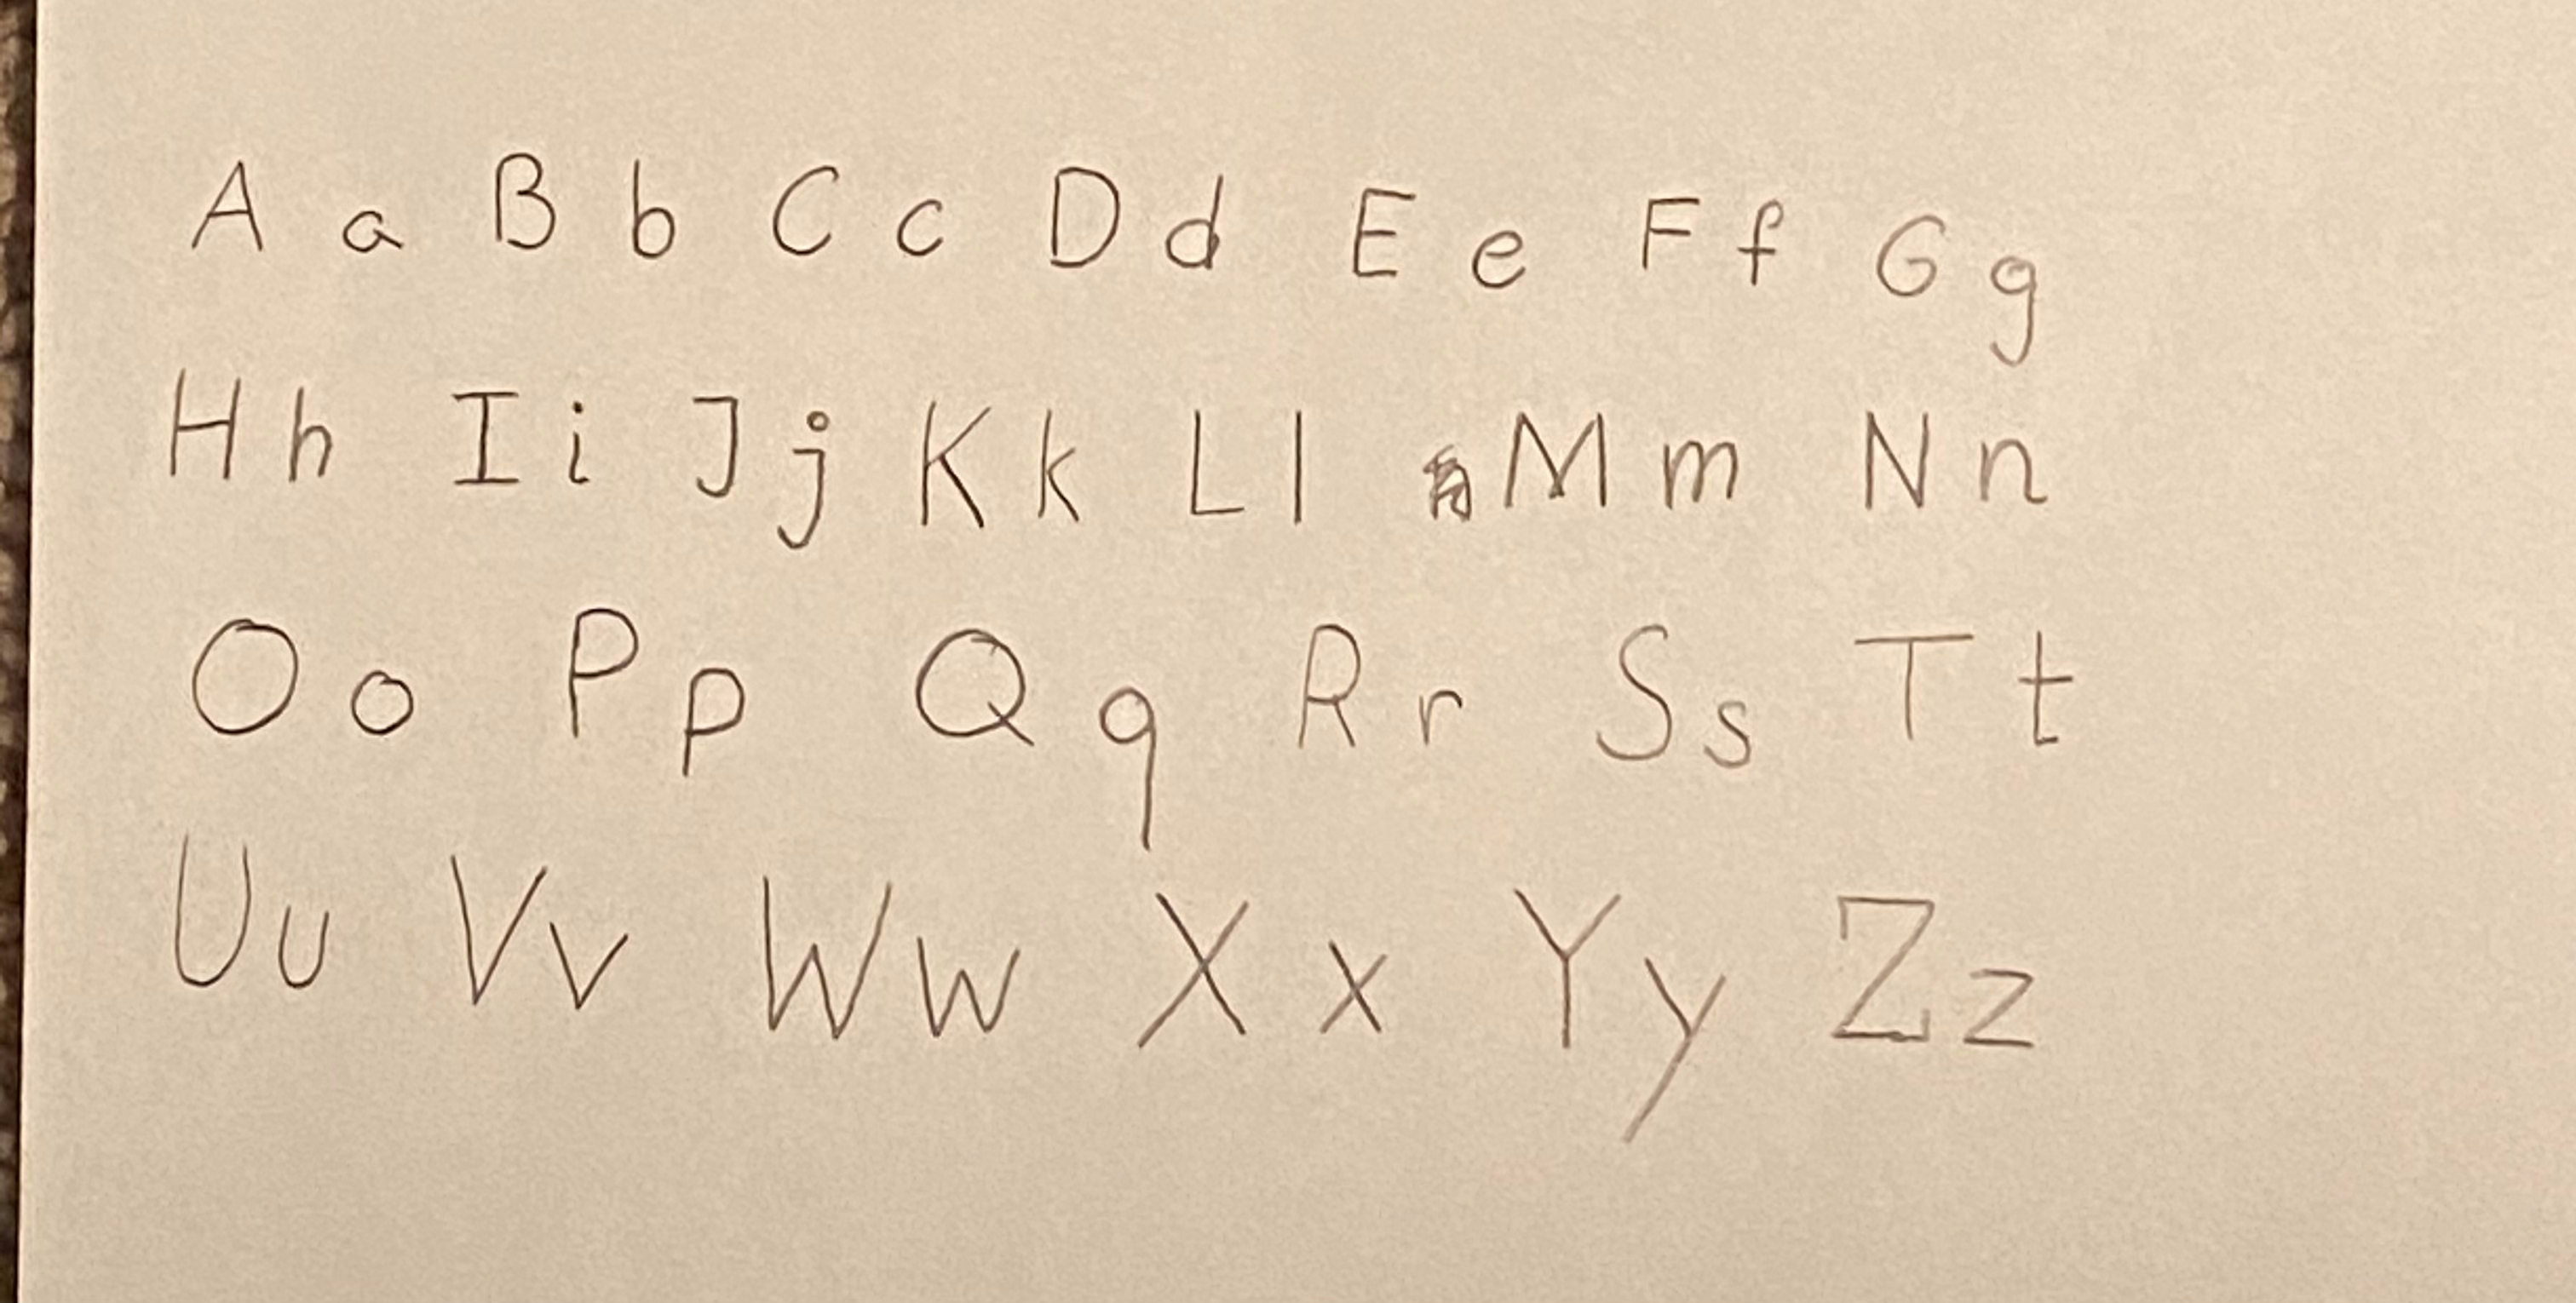 A a B b C c D d E e F f G g
H h I i J j K k L l M m N n
O o P p Q q R r S s T t
U u V v W w X x Y y Z z